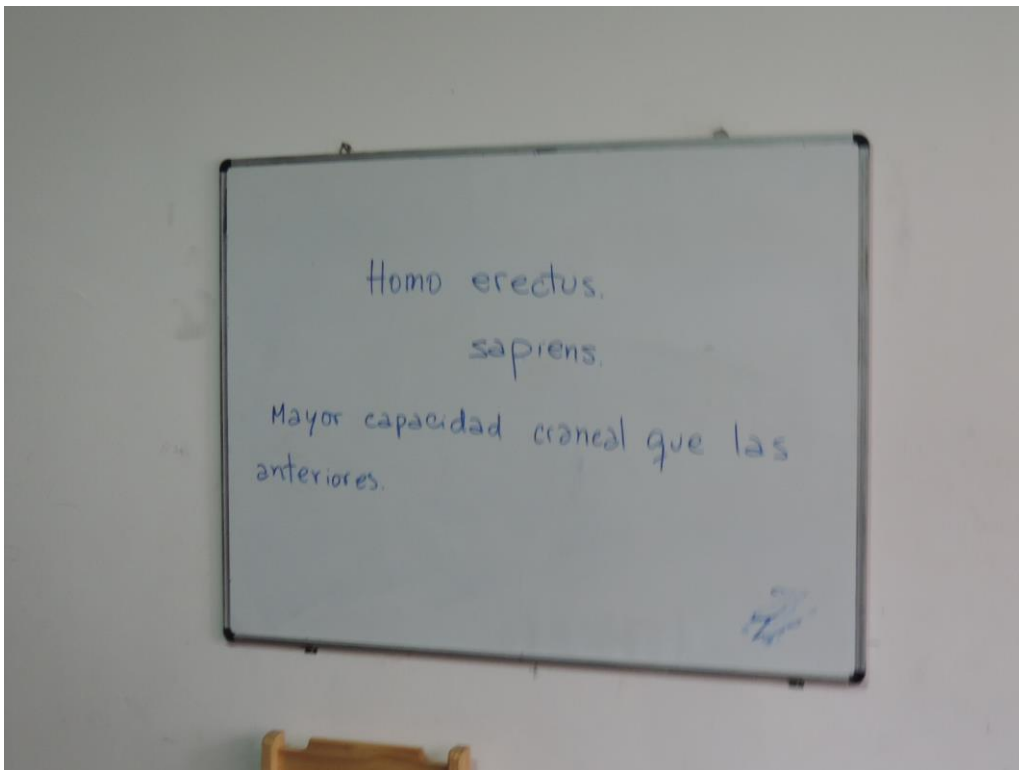 Homo erectus.
sapiens.
Mayor capacidad craneal que las
anteriores.